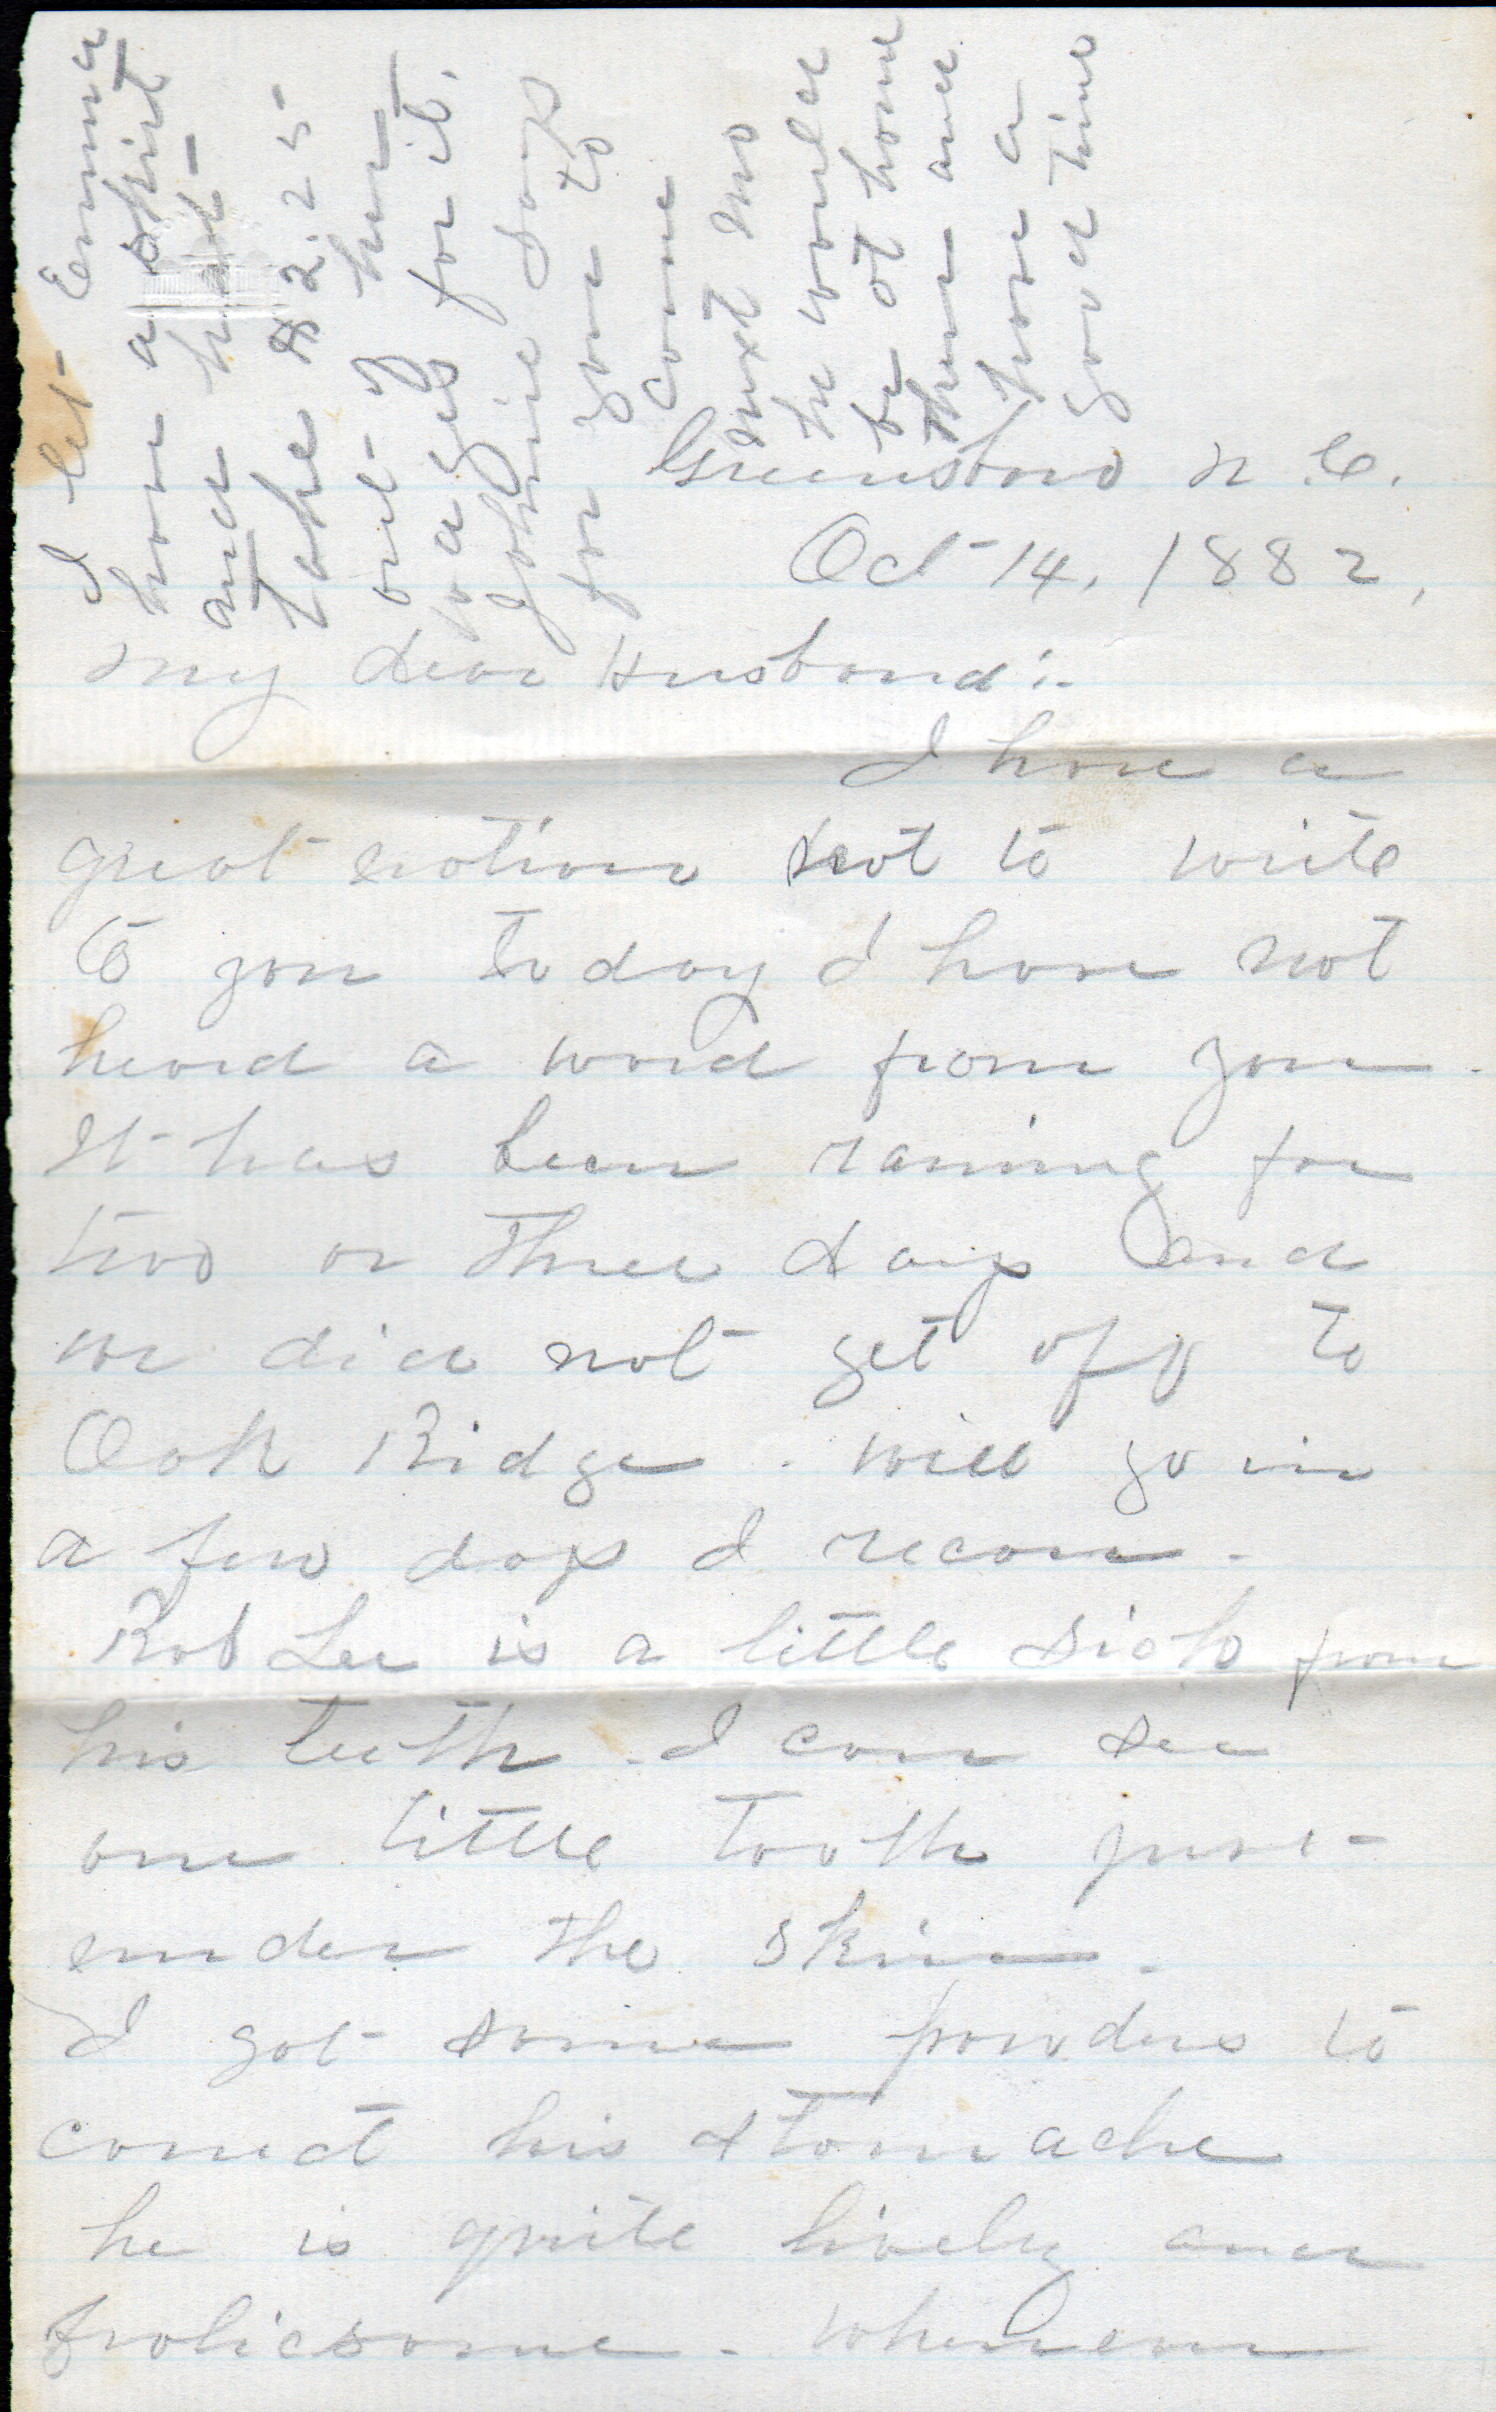 Greensboro N.C.
Oct 14, 1882,
My dear Husband:-
I have a
great notion not to write
to you today I have not
heard a word from you.
It has been raining for
two or three days and
we did not get off to
Oak Ridge. will go in
a few days I recon.
Rob Lee is a little sick from
his teeth. I can see
one little tooth just
under the skin.
I got some powders to
correct his stomache
he is quite lively and
frolicsome. Whenever
I let Emma
have a skirt
and hat
take $2.25
out of her
wages for it.
Johnie says
for you to
come
next mo
he would
be at home
then and
have a
good time